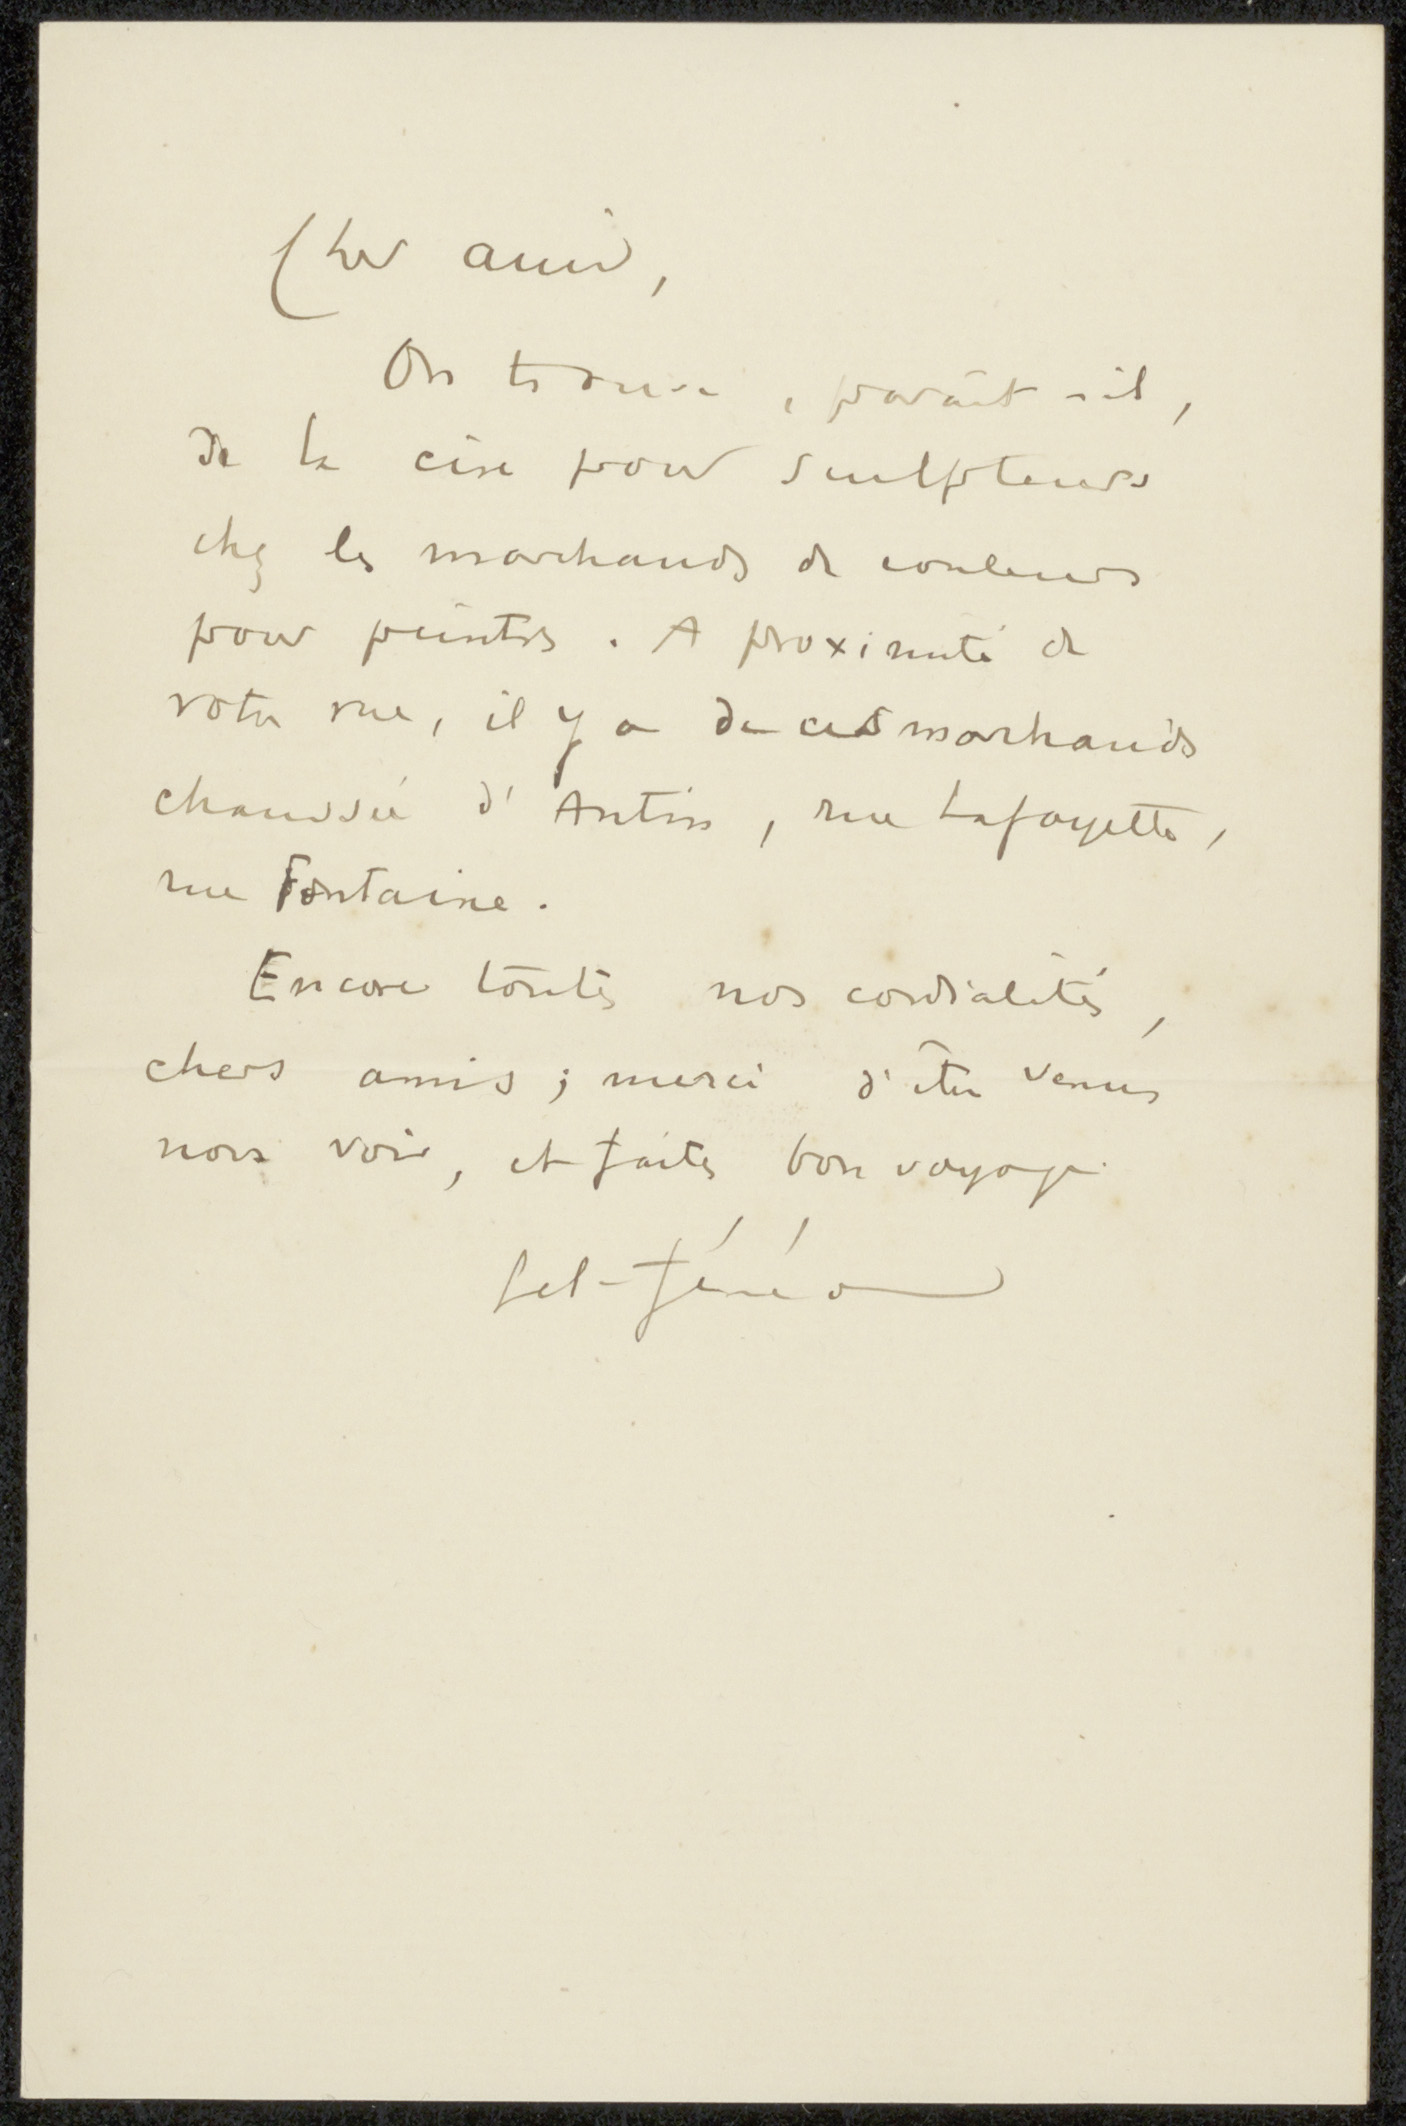 Cher ami,
On trouve, paraît-il,
de la cire pour sculpteurs
chez les marchands de couleurs
pour peintres. A proximité de
votre rue, il y a de ces marchands
chaussée d'Antin, rue Lafayette,
rue Fontaine.
Encore toutes nos cordialités,
chers amis; merci d'être venus
nous voir, et faites bon voyage.
fel-fénéon